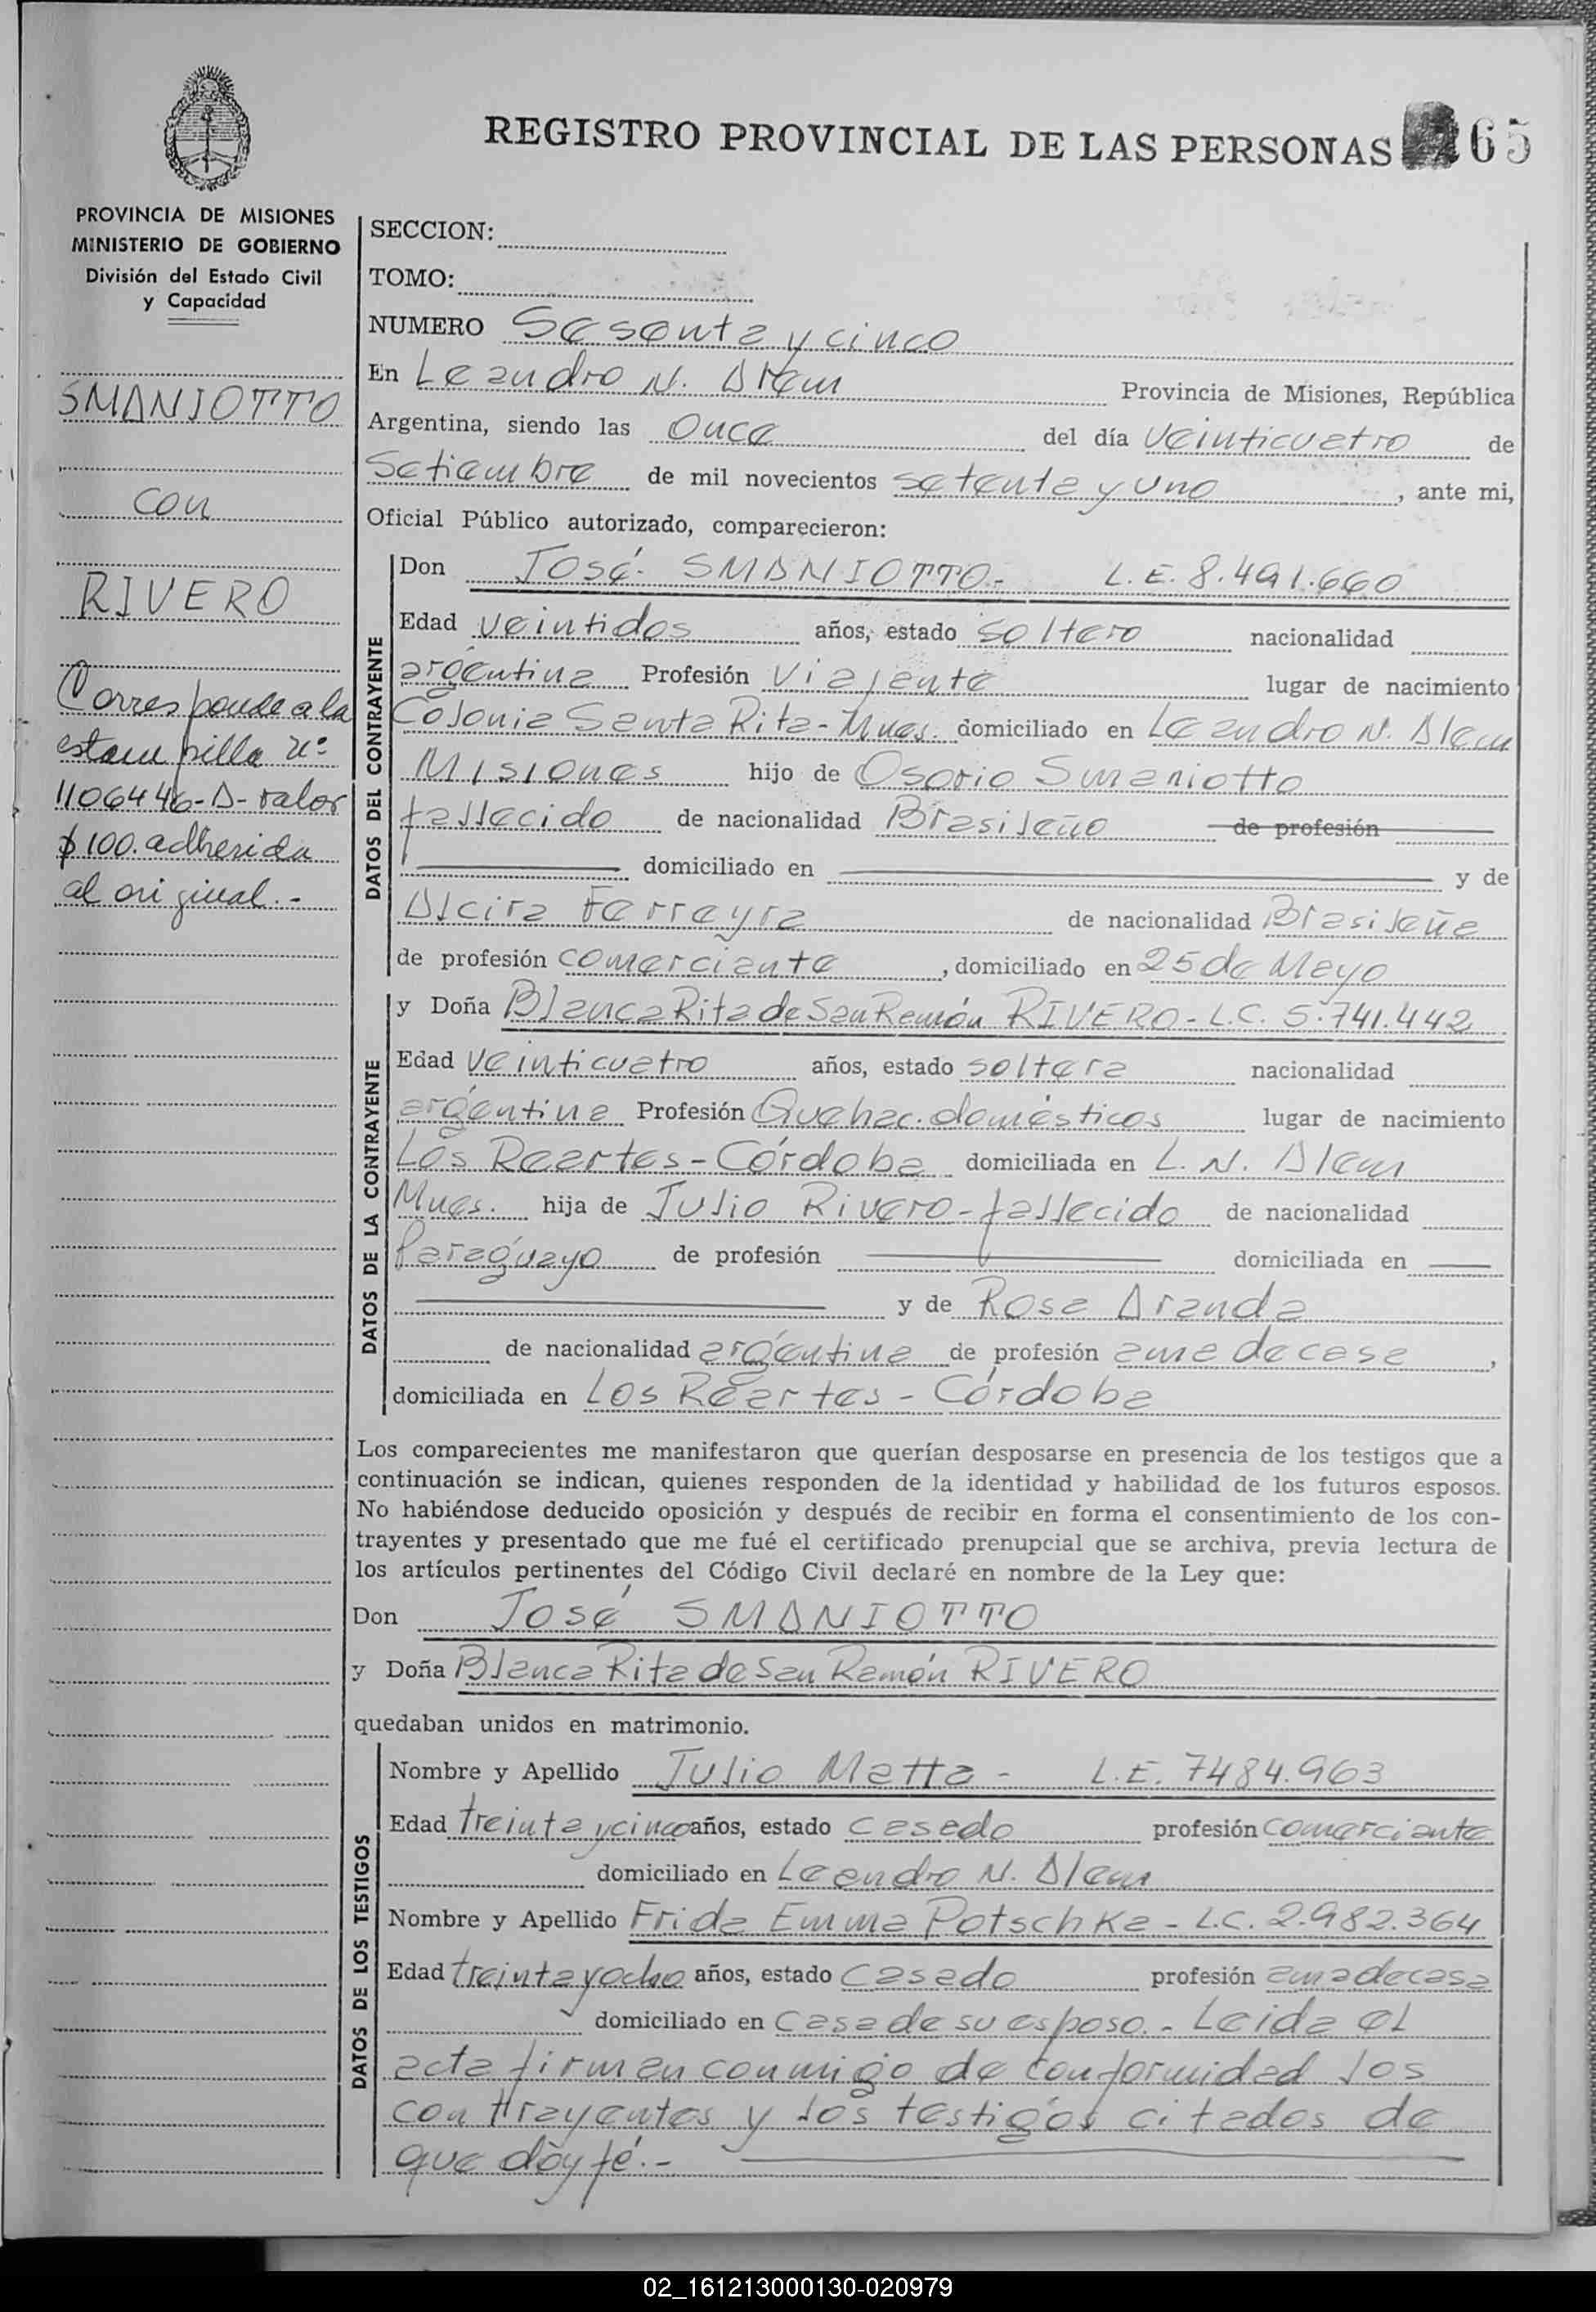 REGISTRO PROVINCIAL DE LAS PERSONAS 65
PROVINCIA DE MISIONES
MINISTERIO DE GOBIERNO
División del Estado Civil
y Capacidad
SMANIOTTO
con
RIVERO
Corresponde a la
estampilla nº
1106446-A- valor
$100. adherida
al original.-
SECCION:
TOMO:
NUMERO Sesenta y cinco
En Leandro N. Alem Provincia de Misiones, República
Argentina, siendo las Once del día Veinticuatro de
Setiembre de mil novecientos setenta y uno, ante mi,
Oficial Público autorizado, comparecieron:
DATOS DEL CONTRAYENTE
Don José SMANIOTTO.- L.E. 8.491.660
Edad veintidos años, estado soltero nacionalidad
argentina Profesión Viajante lugar de nacimiento
Colonia Santa Rita - Mnes. domiciliado en Leandro N. Alem
Misiones hijo de Osorio Smaniotto
fallecido de nacionalidad Brasileño de profesión
domiciliado en y de
Alcira Ferreyra de nacionalidad Brasileña
de profesión comerciante, domiciliado en 25 de Mayo
DATOS DE LA CONTRAYENTE
y Doña Blanca Rita de San Ramón RIVERO - L.C. 5.741.442
Edad veinticuatro años, estado soltera nacionalidad
argentina Profesión Quehac. domésticos lugar de nacimiento
Los Reartes - Córdoba domiciliada en L. N. Alem
Mnes. hija de Julio Rivero - fallecido de nacionalidad
Paraguayo de profesión domiciliada en
y de Rosa Aranda
de nacionalidad argentina de profesión ama de casa,
domiciliada en Los Reartes - Córdoba
Los comparecientes me manifestaron que querían desposarse en presencia de los testigos que a
continuación se indican, quienes responden de la identidad y habilidad de los futuros esposos.
No habiéndose deducido oposición y después de recibir en forma el consentimiento de los con-
trayentes y presentado que me fué el certificado prenupcial que se archiva, previa lectura de
los artículos pertinentes del Código Civil declaré en nombre de la Ley que:
Don José SMANIOTTO
y Doña Blanca Rita de San Ramón RIVERO
quedaban unidos en matrimonio.
DATOS DE LOS TESTIGOS
Nombre y Apellido Julio Matta - L.E. 7484.963
Edad treinta y cinco años, estado casado profesión comerciante
domiciliado en Leandro N. Alem
Nombre y Apellido Frida Emma Potschka - L.C. 2.982.364
Edad treinta y ocho años, estado casado profesión ama de casa
domiciliado en casa de su esposo.- Leida el
acta firman conmigo de conformidad los
contrayentes y los testigos citados de
que doy fé.-
02_161213000130-020979